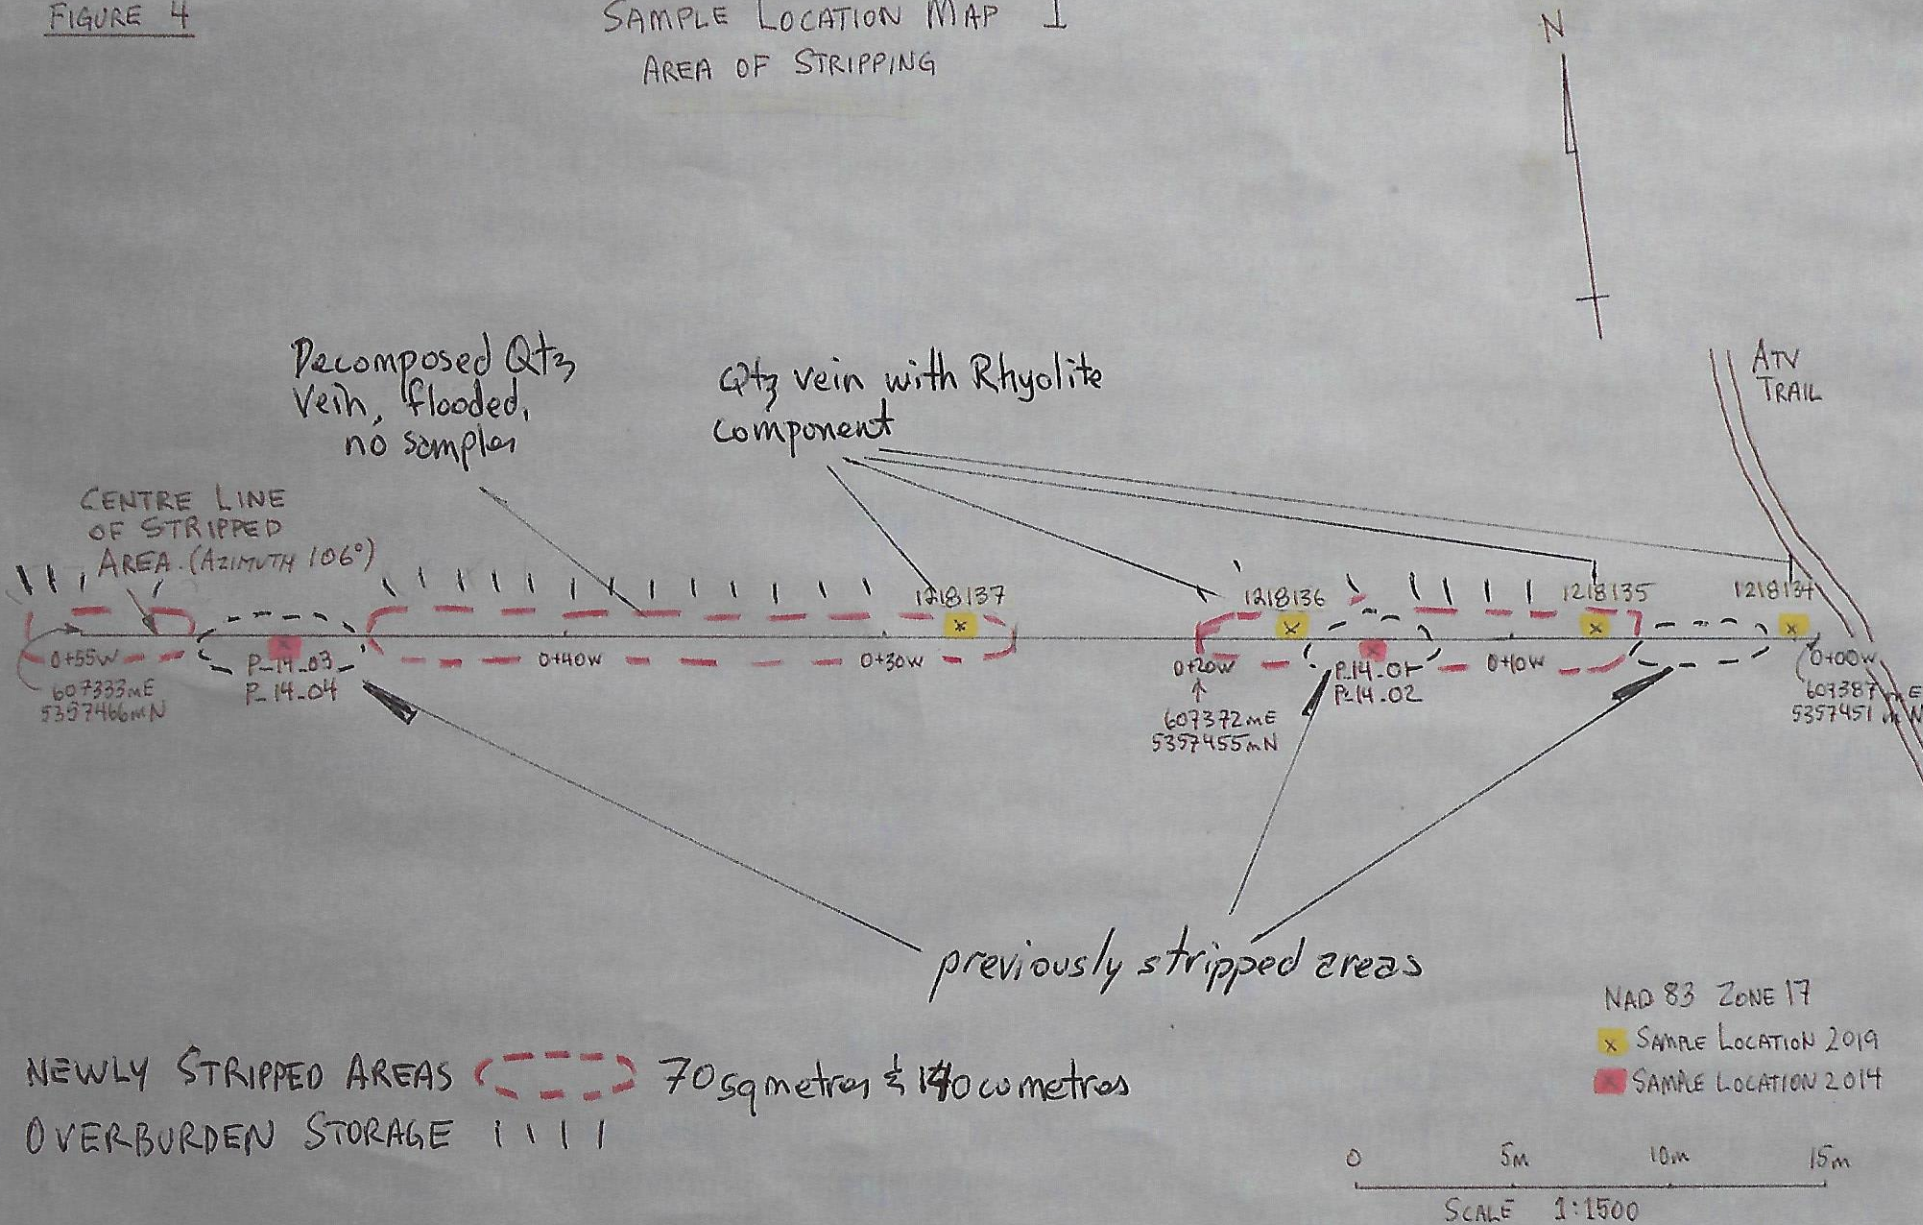 FIGURE 4
SAMPLE LOCATION MAP 1
AREA OF STRIPPING
N
ATV
TRAIL
Decomposed Qtz
Vein, flooded,
no samples
Qtz vein with Rhyolite
component
CENTRE LINE
OF STRIPPED
AREA. (AZIMUTH 106°)
1218137
1218136
1218135
1218134
0+55W
P-14-03
P-14-04
0+40W
0+30W
0+20W
P-14-01
P-14-02
0+10W
0+00W
607333mE
5357466mN
607372mE
5357455mN
607387mE
5357451mN
previously stripped areas
NAD 83 ZONE 17
x SAMPLE LOCATION 2019
x SAMPLE LOCATION 2014
NEWLY STRIPPED AREAS 70 sq metres & 140 cu metres
OVERBURDEN STORAGE
0 5m 10m 15m
SCALE 1:1500